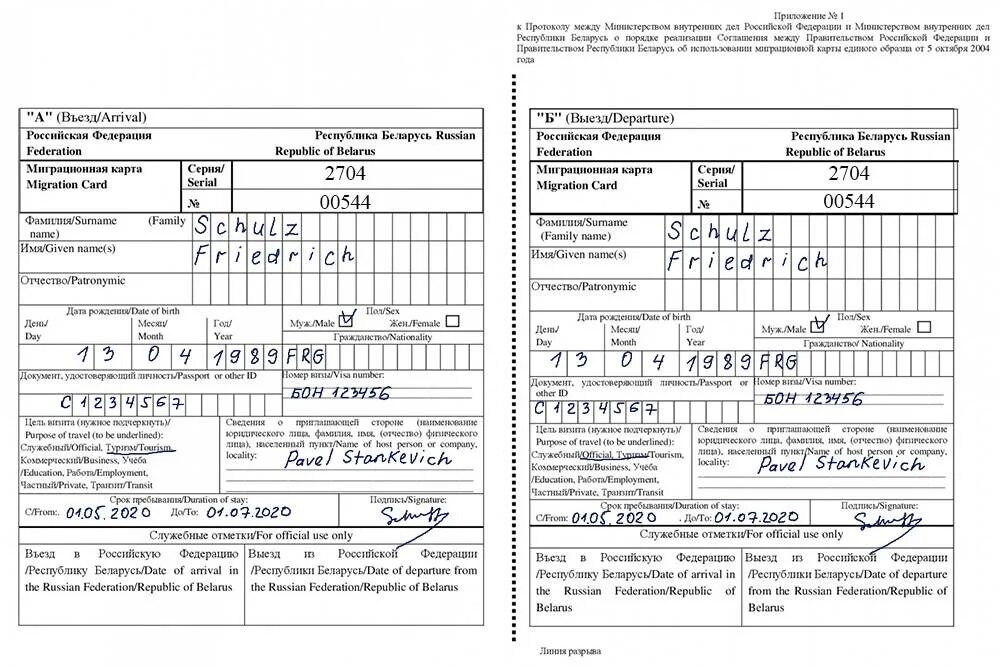 Приложение № 1
к Протоколу между Министерством внутренних дел Российской Федерации и Министерством внутренних дел
Республики Беларусь о порядке реализации Соглашения между Правительством Российской Федерации и
Правительством Республики Беларусь об использовании миграционной карты единого образца от 5 октября 2004
года
"А" (Въезд/Arrival)
Российская Федерация Республика Беларусь Russian
Federation Republic of Belarus
Миграционная карта Серия/ 2704
Migration Card Serial
№ 00544
Фамилия/Surname (Family
name) Schulz
Имя/Given name(s) Friedrich
Отчество/Patronymic
Дата рождения/Date of birth Пол/Sex
День/ Месяц/ Год/ Муж./Male Жен./Female
Day Month Year Гражданство/Nationality
13 04 1989 FRG
Документ, удостоверяющий личность/Passport or other ID Номер визы/Visa number:
БОН 123456
C1234567
Цель визита (нужное подчеркнуть)/
Purpose of travel (to be underlined):
Служебный/Official, Туризм/Tourism,
Коммерческий/Business, Учёба
/Education, Работа/Employment,
Частный/Private, Транзит/Transit
Сведения о приглашающей стороне (наименование
юридического лица, фамилия, имя, (отчество) физического
лица), населенный пункт/Name of host person or company,
locality: Pavel Stankevich
Срок пребывания/Duration of stay: Подпись/Signature:
С/From:. 01.05.2020 До/To: 01.07.2020
Служебные отметки/For official use only
Въезд в Российскую Федерацию
/Республику Беларусь/Date of arrival in
the Russian Federation/Republic of Belarus
Выезд из Российской Федерации
/Республики Беларусь/Date of departure from
the Russian Federation/Republic of Belarus
"Б" (Выезд/Departure)
Российская Федерация Республика Беларусь Russian
Federation Republic of Belarus
Миграционная карта Серия/ 2704
Migration Card Serial
№ 00544
Фамилия/Surname
(Family name) Schulz
Имя/Given name(s) Friedrich
Отчество/Patronymic
Дата рождения/Date of birth Пол/Sex
День/ Месяц/ Год/ Муж./Male Жен./Female
Day Month Year Гражданство/ Nationality
13 04 1989 FRG
Документ, удостоверяющий личность/Passport or Номер визы/Visa number:
other ID БОН 123456
C1234567
Цель визита (нужное подчеркнуть)/
Purpose of travel (to be underlined):
Служебный/Official, Туризм/Tourism,
Коммерческий/Business, Учёба
/Education, Работа/Employment,
Частный/Private, Транзит/Transit
Сведения о приглашающей стороне (наименование
юридического лица, фамилия, имя, (отчество) физического
лица), населенный пункт/Name of host person or company,
locality: Pavel Stankevich
Срок пребывания/Duration of stay: Подпись/Signature:
С/From: 01.05.2020 . До/To: 01.07.2020
Служебные отметки/For official use only
Въезд в Российскую Федерацию
/Республику Беларусь/Date of arrival in
the Russian Federation/Republic of
Belarus
Выезд из Российской Федерации
/Республики Беларусь/Date of departure
from the Russian Federation/Republic of
Belarus
Линия разрыва